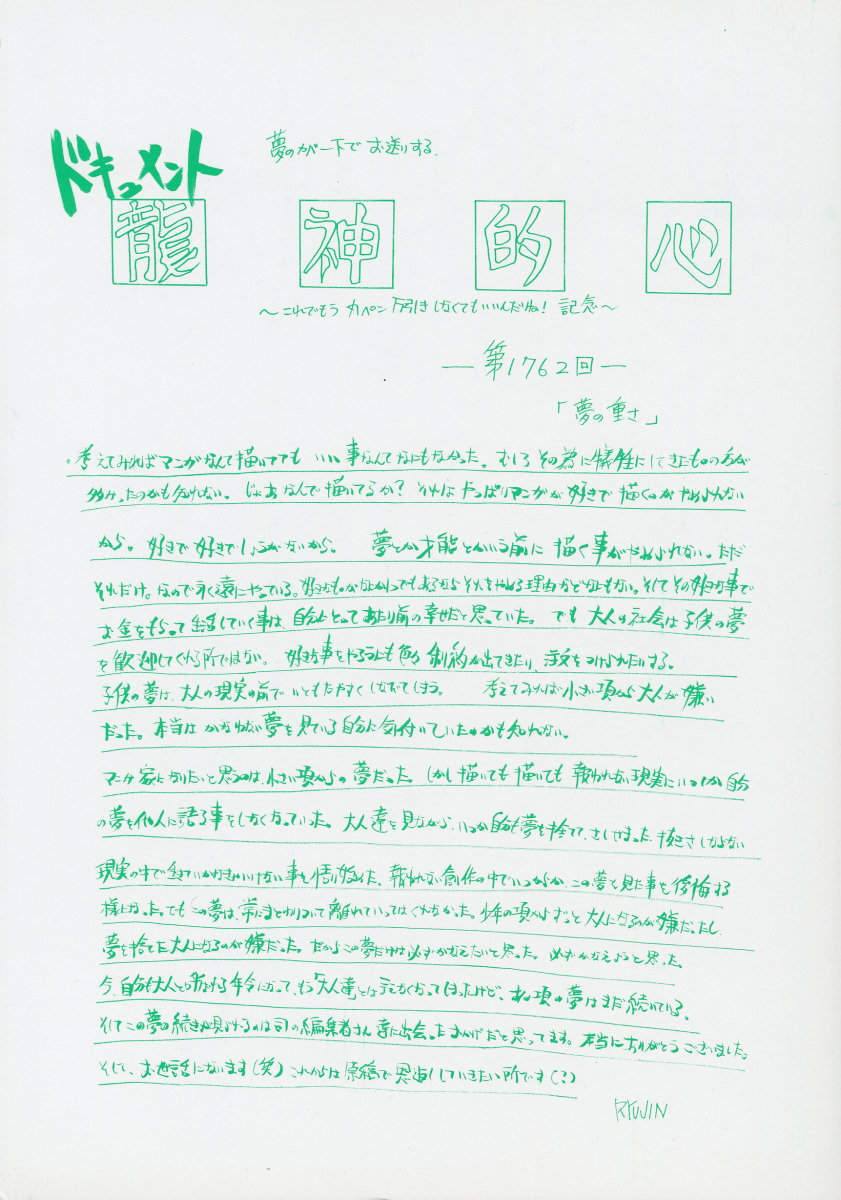 ドキュメント
夢のカバー下でお送りする。
龍神的心
〜これでもうカペン下引きしなくてもいいんだね！ 記念〜
―第1762回―
「夢の重さ」
・考えてみればマンガなんて描いててもいい事なんてなにもなかった。むしろその為に犠牲にしてきたものの方が
多かったのかも知れない。じゃあなんで描いてるか？それはやっぱりマンガが好きで描くのがやめられない
から。好きで好きでしょうがないから。 夢とか才能とかいう前に描く事がやめられない。ただ
それだけ。なので永遠にやっている。好きなものがなにかひとつでもあるならそれをやめる理由などなにもない。そしてその好きな事で
お金をもらって生活していく事は、自分にとってあたり前の幸せだと思っていた。でも大人の社会は子供の夢
を歓迎してくれる所ではない。 好きな事をやるうえにも色々制約が出てきたり、注文をつけられたりする。
子供の夢は、大人の現実の前でいともたやすくしおれてしまう。 考えてみれば小さい頃から大人が嫌い
だった。本当はかなわない夢を見ている自分に気付いていたのかも知れない。
マンガ家になりたいと思うのは、小さい頃からの夢だった。しかし描いても描いても報われない現実にいつしか自分
の夢を他人に語る事をしなくなっていった。大人達を見ながら、いつか自分も夢を捨て、
現実の中で生きていかなきゃいけない事を悟り始めた。報われない創作の中でいつからか、この夢を見た事を後悔する
様になった。でもこの夢は、常にまとわりついて離れていってはくれなかった。少年の頃からずっと大人になるのが嫌だったし、
夢を捨てた大人になるのが嫌だった。だからこの夢だけは必ずかなえたいと思った。必ずかなえようと思った。
今、自分も大人と呼ばれる年令になって、もう「大人達」とは言えなくなってしまったけど、あの頃の夢はまだ続いている。
そしてこの夢の続きが見れるのは司の編集者さん達に出会ったおかげだと思ってます。本当にありがとうございました。
そして、お世話になります(笑) これからは原稿で恩返ししていきたい所です(？)
RYUJIN